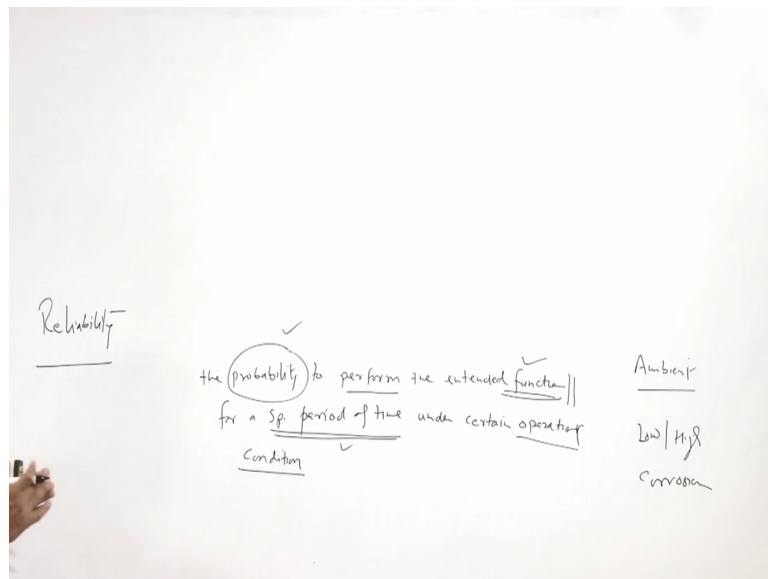 Reliability
the probability to perform the intended function
for a sp. period of time under certain operating
Condition
Ambient
Low/High
Corrosion